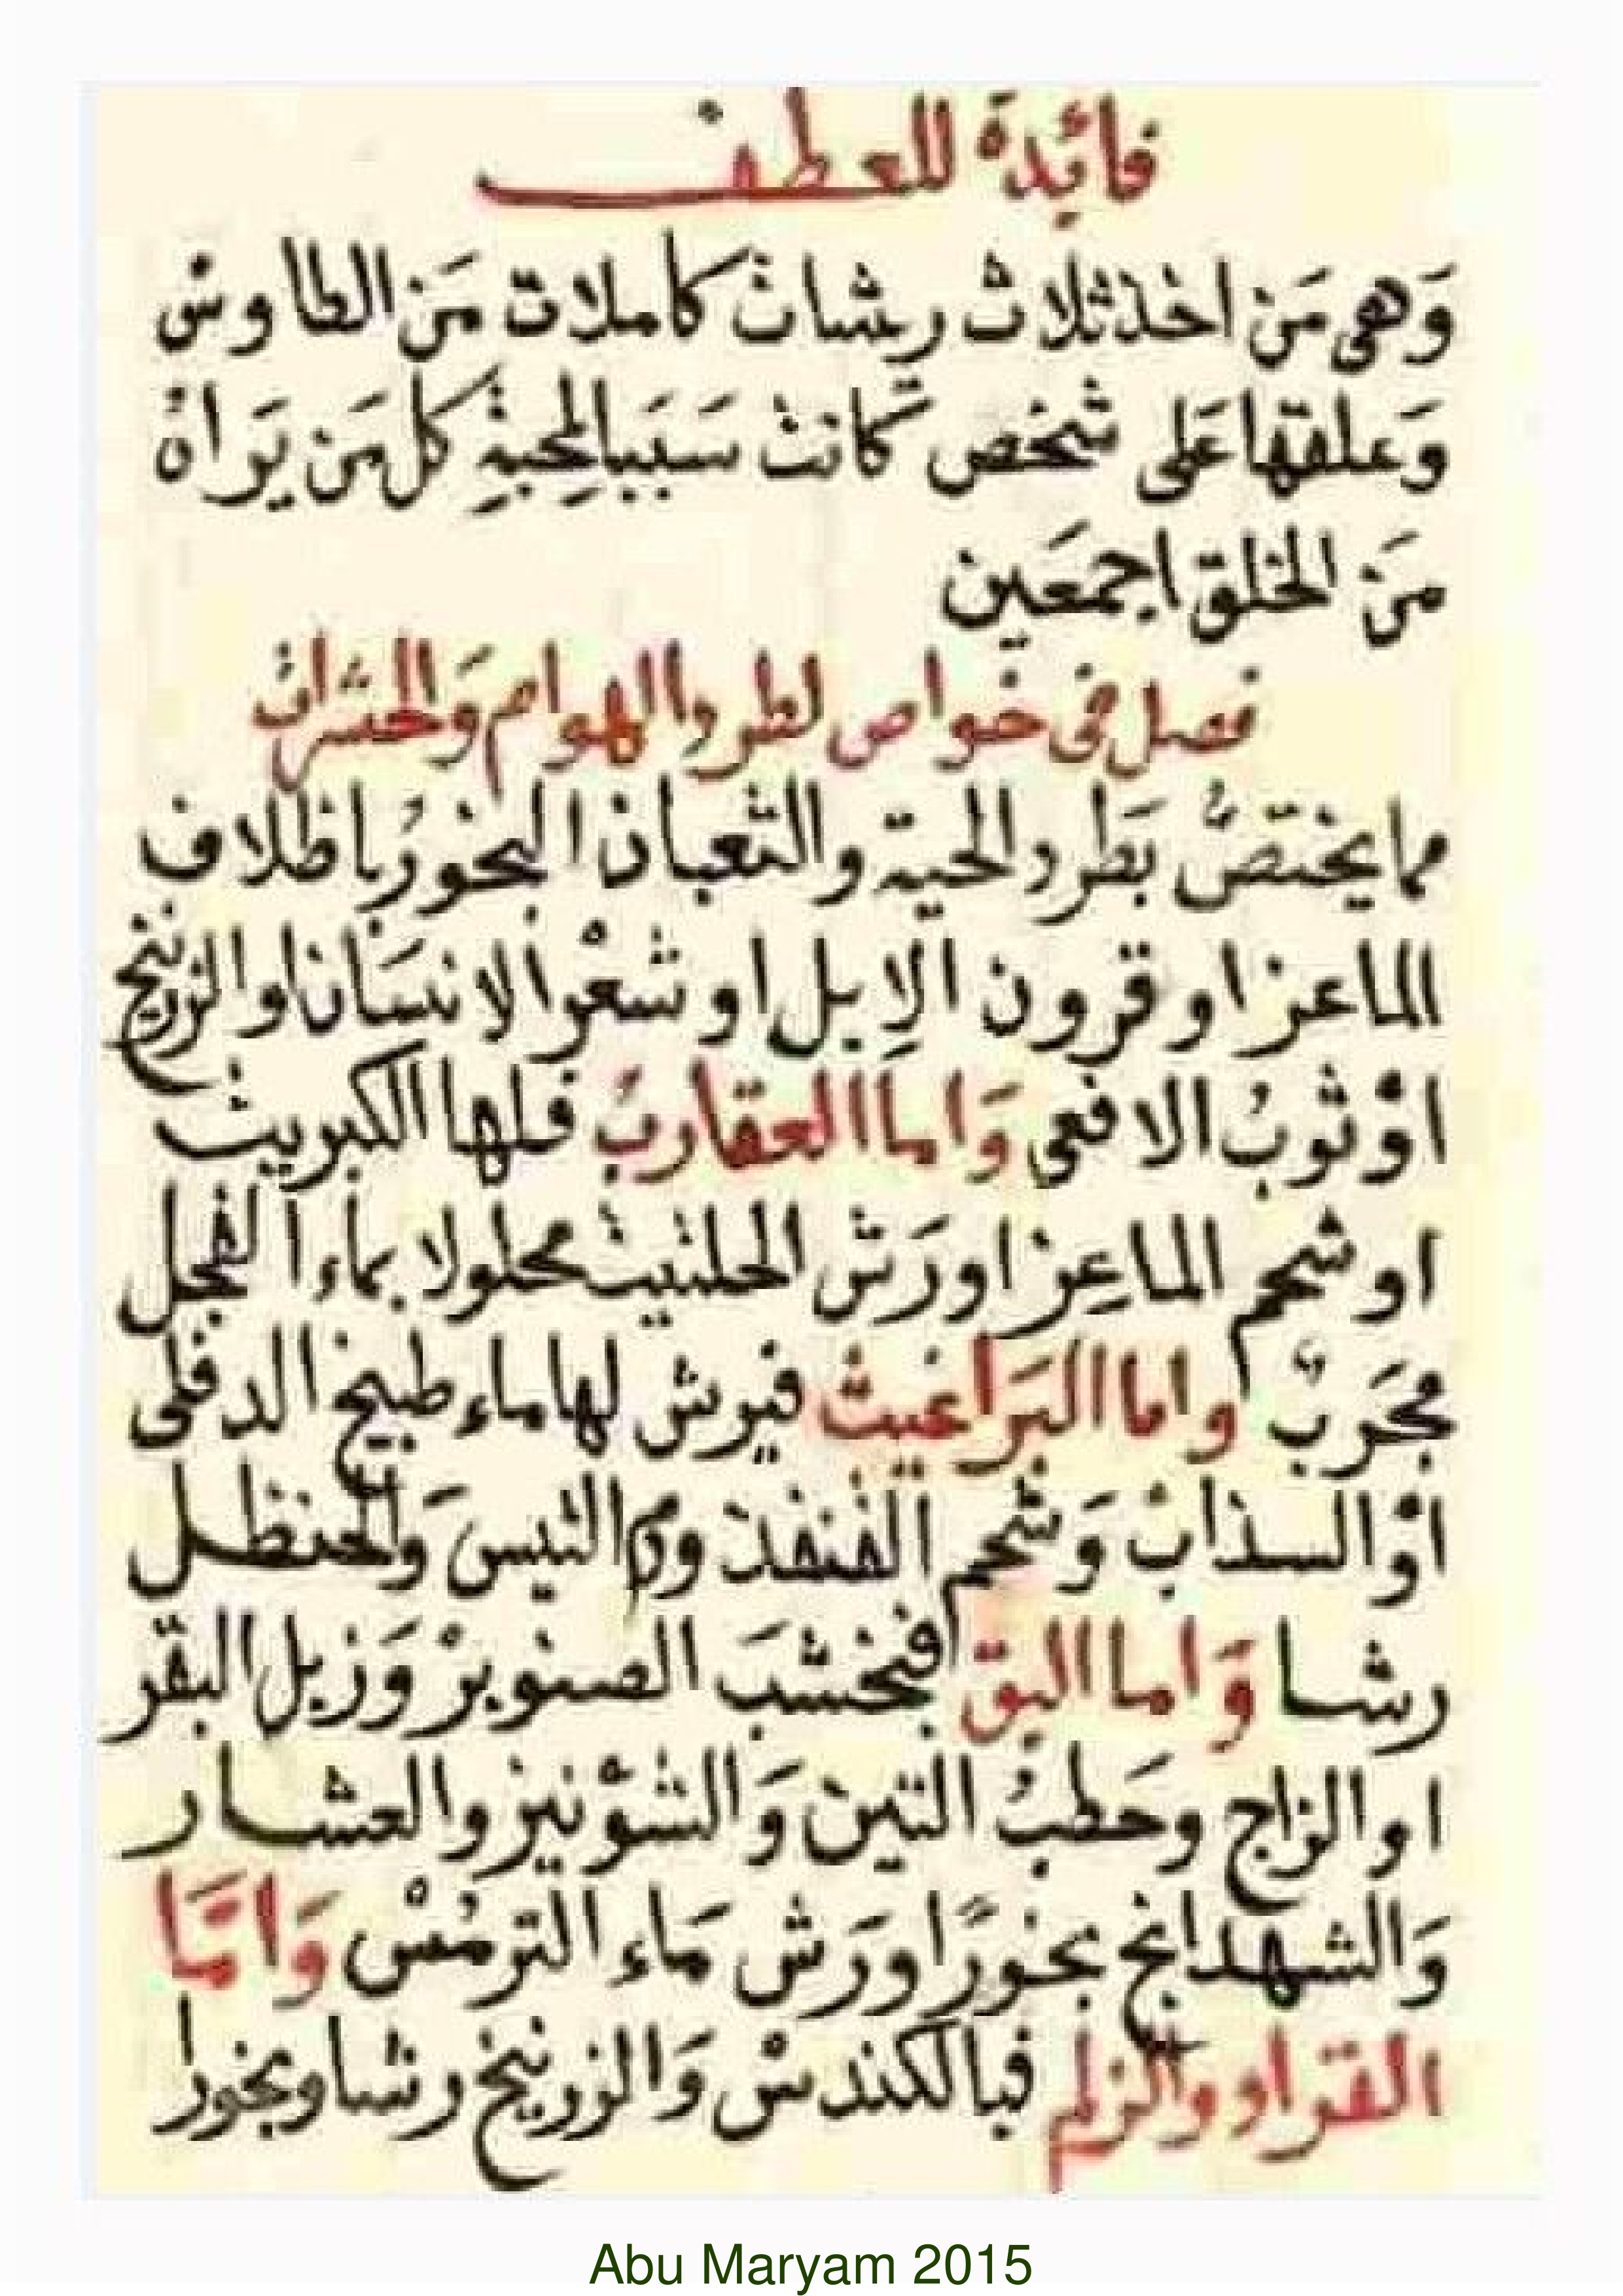 فائدة للعطف
وَهى مَن اخذ ثلاث ريشات كاملات مَن الطاوس
وَعلقها عَلى شخص كانت سَبَبا لمحبةِ كل مَن يَراهُ
مَن الخلق اجمعَين
فصل فى خواص لطرد الهوام وَالحشرات
مما يختصُّ بَطرد الحية والثعبان البخورُ باظلاف
الماعز او قرون الاِبل او شعْر الانسَان او الزرنيخ
اوْ ثوبُ الافعى وَاما العقاربُ فلها الكبريت
او شحم الماعِز او رَش الحلتيت محلولا بماء الفجل
مجَربٌ واما البَراغيث فيرش لها ماء طبيخ الدفلى
اوْ السذابْ وَشحم القنفذ ودم التيس وَالحنظل
رشا وَاما البق فبخشبَ الصنوبرْ وَزبل البقر
او الزاج وحَطبُ التين وَالشوْنيز والعشار
وَالشهدانج بخورًا وَرَش مَاء الترمُسْ وَامَّا
القراد والزلم فبالكندسْ وَالزرنيخ رشا وبخورا
Abu Maryam 2015